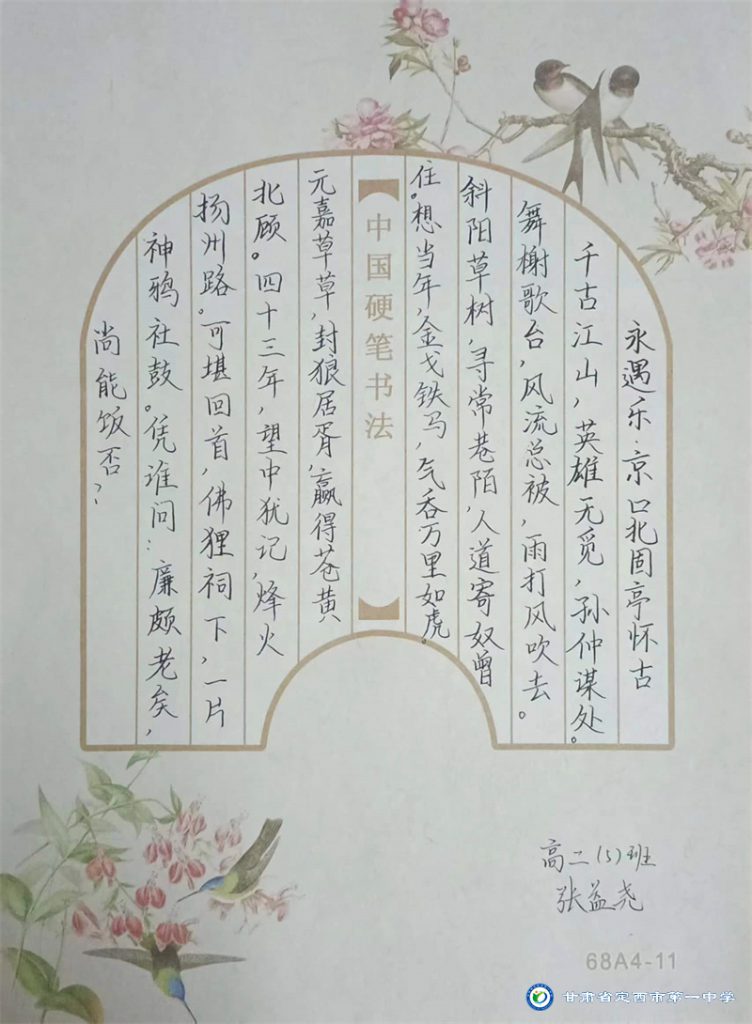 永遇乐·京口北固亭怀古
千古江山,英雄无觅,孙仲谋处。
舞榭歌台,风流总被,雨打风吹去。
斜阳草树,寻常巷陌,人道寄奴曾
住。想当年,金戈铁马,气吞万里如虎。
中国硬笔书法
元嘉草草,封狼居胥,赢得苍黄
北顾。四十三年,望中犹记,烽火
扬州路。可堪回首,佛狸祠下,一片
神鸦社鼓。凭谁问:廉颇老矣,
尚能饭否?
高二(5)班
张益尧
68A4-11
甘肃省定西市第一中学